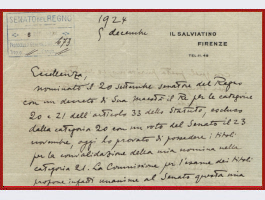 SENATO DEL REGNO
8
473
1924
5 dicembre
IL SALVIATINO
FIRENZE
TEL. 21-48
Eccellenza,
nominato il 20 Settembre senatore del Regno
con un decreto di Sua Maestà il Re per le categorie
20 e 21 dell'articolo 33 dello Statuto, escluso
dalla categoria 20 con un voto del Senato il 23
novembre, oggi ho provato di possedere i titoli
per la convalidazione della mia nomina nella
categoria 21. La Commissione per l'esame dei titoli
propone infatti unanime al Senato questa mia